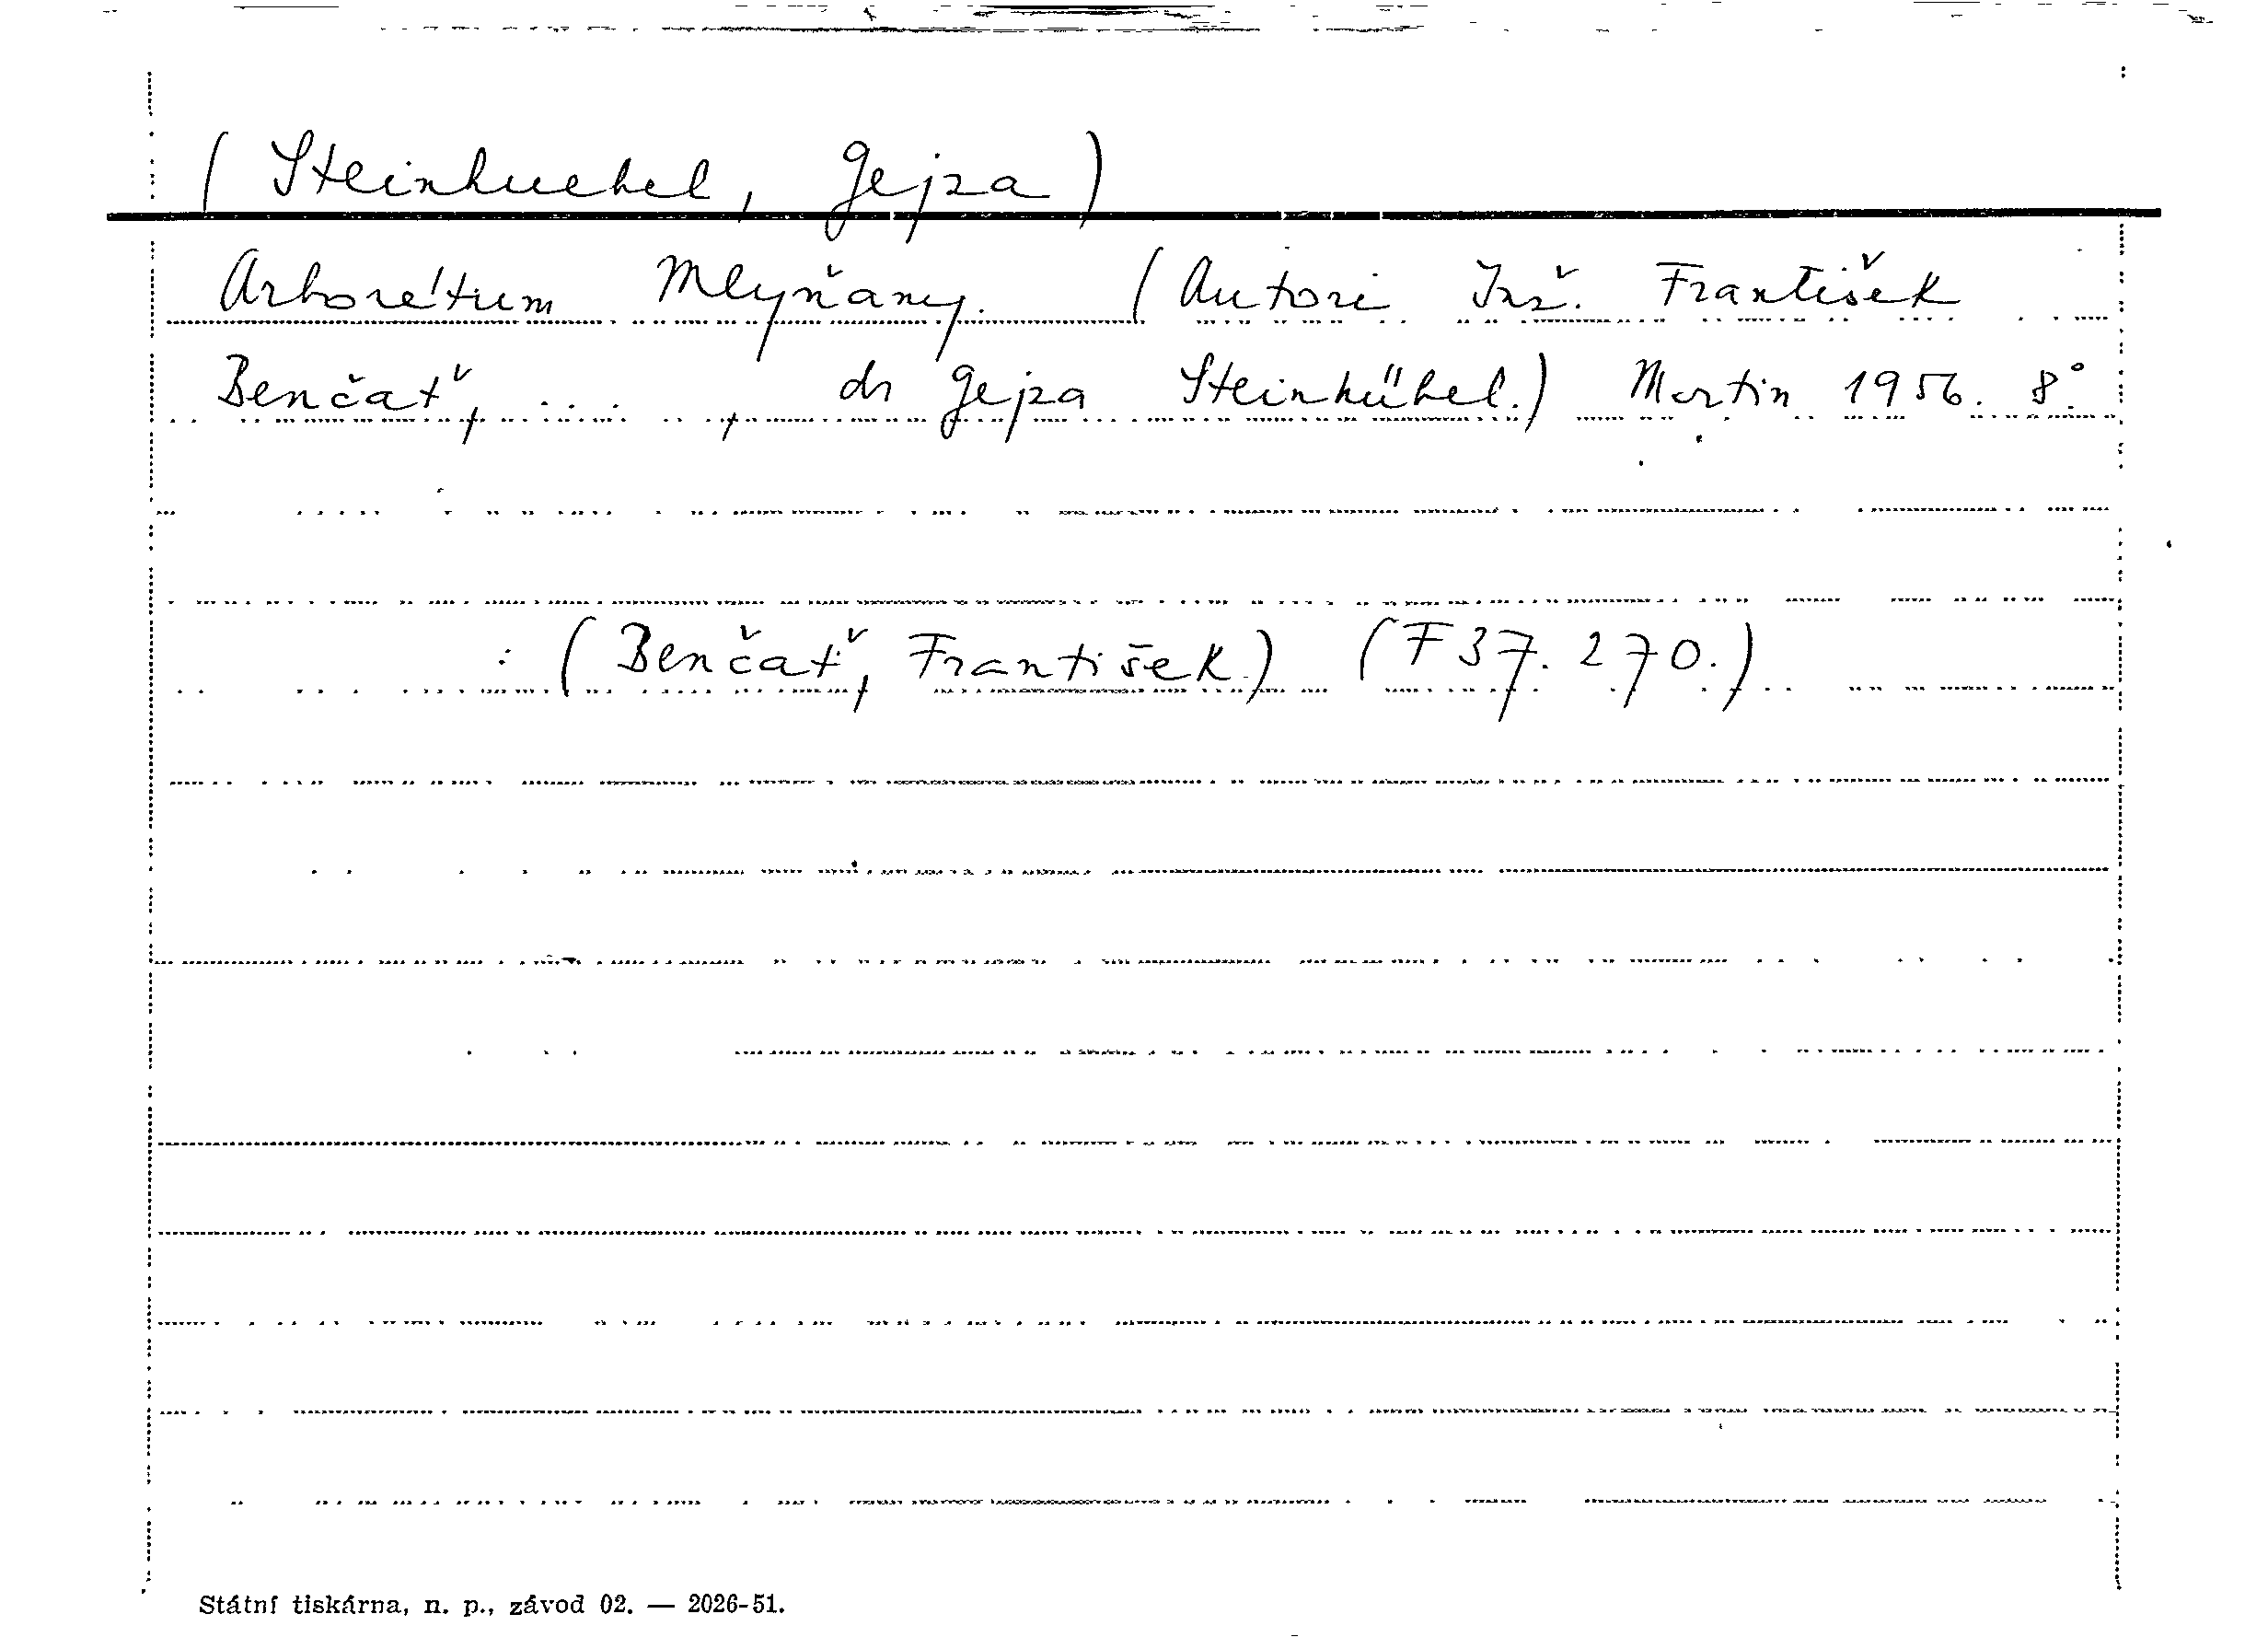 (Steinhuebel, Gejza)
Arborétum Mlyňany. (Autori Inž. František
Benčať, ..... , dr Gejza Steinhübel.) Martin 1956. 8°.
: (Benčať, František) (F 37.270.)
Státní tiskárna, n. p., závod 02. — 2026-51.